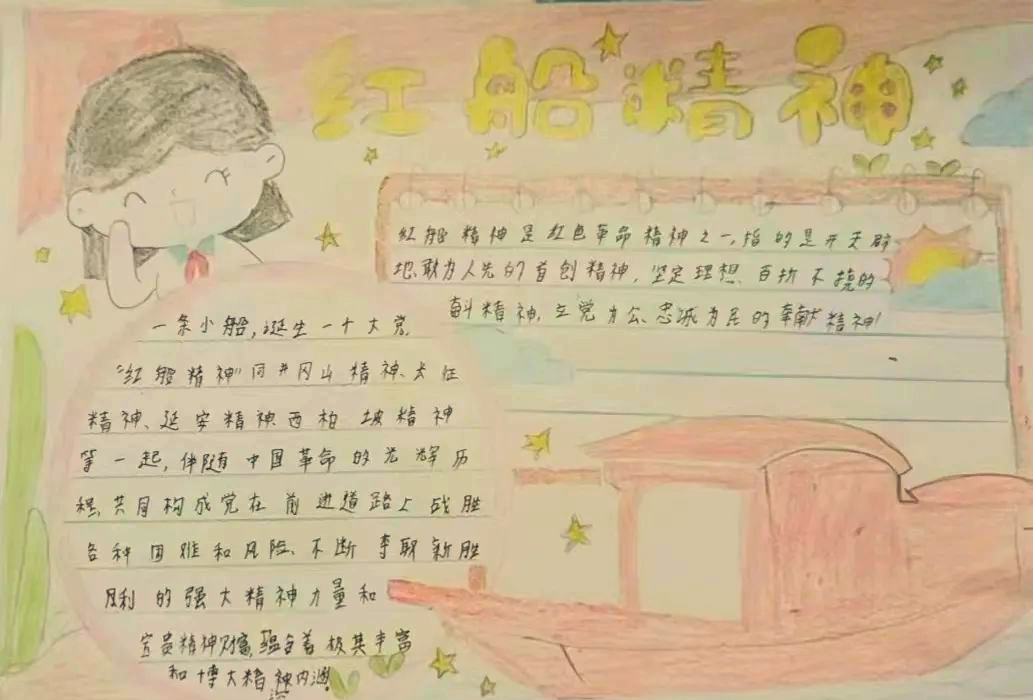 红船精神
红船精神是红色革命精神之一,指的是开天辟
地、敢为人先的首创精神,坚定理想、百折不挠的
奋斗精神,立党为公、忠诚为民的奉献精神!
一条小船,诞生一个大党.
“红船精神”同井冈山精神、长征
精神、延安精神、西柏坡精神
等一起,伴随中国革命的光辉历
程,共同构成党在前进道路上战胜
各种困难和风险、不断夺取新胜
利的强大精神力量和
宝贵精神财富,蕴含着极其丰富
和博大精深神内涵!